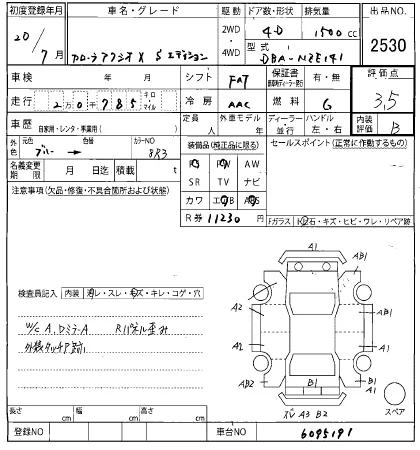 初度登録年月 車名・グレード 駆動 ドア数・形状 排気量 出品NO.
20 7月 カローラアクシオ X Sエディション 2WD 4WD 4D 1500cc 2530
型式 DBA-NZE141
車検 年 月 シフト FAT 保証書 有・無 評価点
走行 2万0千785 キロ マイル 冷房 AAC 燃料 G 3.5
車歴 自家用・レンタ・事業用( ) 定員 外車モデル ディーラー・並行 ハンドル 左・右 内装評価 B
外色 元色 ブルー → 色替 カラーNO 8R3 装備品(純正品に限る) セールスポイント(正常に作動するもの)
名義変更期限 月 日 積載 t PS PW AW
注意事項(欠品・修復・不具合箇所および状態) SR TV ナビ
カワ エアB ABS
R券 11230 円 Fガラス トビ石・キズ・ヒビ・ワレ・リペア跡
検査員記入 内装 汚レ・スレ・キズ・キレ・コゲ・穴
W/C A, Dミラ-A Rパネル歪み
外装タッチP跡
A1
AB1
A1
A2
A2
AB2
A1
A1
B1
B1
A1
A3 B2
スペア
長さ cm 幅 cm 高さ cm
登録NO 車台NO 6095191